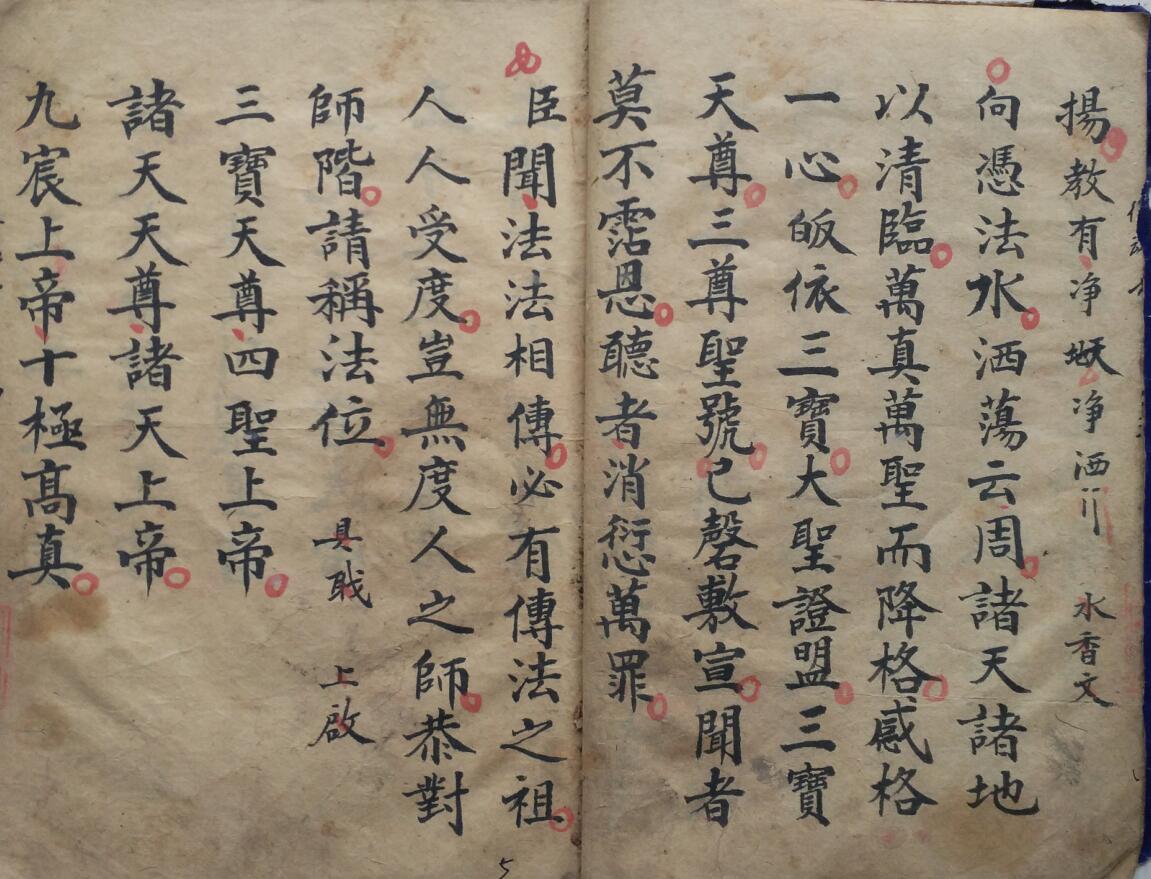 揚教有净𡞭净洒
水香文
向憑法水洒蕩云周諸天諸地
以清臨萬真萬聖而降格感格
一心皈依三寶大聖證盟三寶
天尊三尊聖號已罄敷宣聞者
莫不霑恩聽者消愆萬罪
臣聞法法相傳必有傳法之祖
人人受度豈無度人之師恭對
師階請稱法位
具戢 上啟
三寶天尊四聖上帝
諸天天尊諸天上帝
九宸上帝十極髙真
5